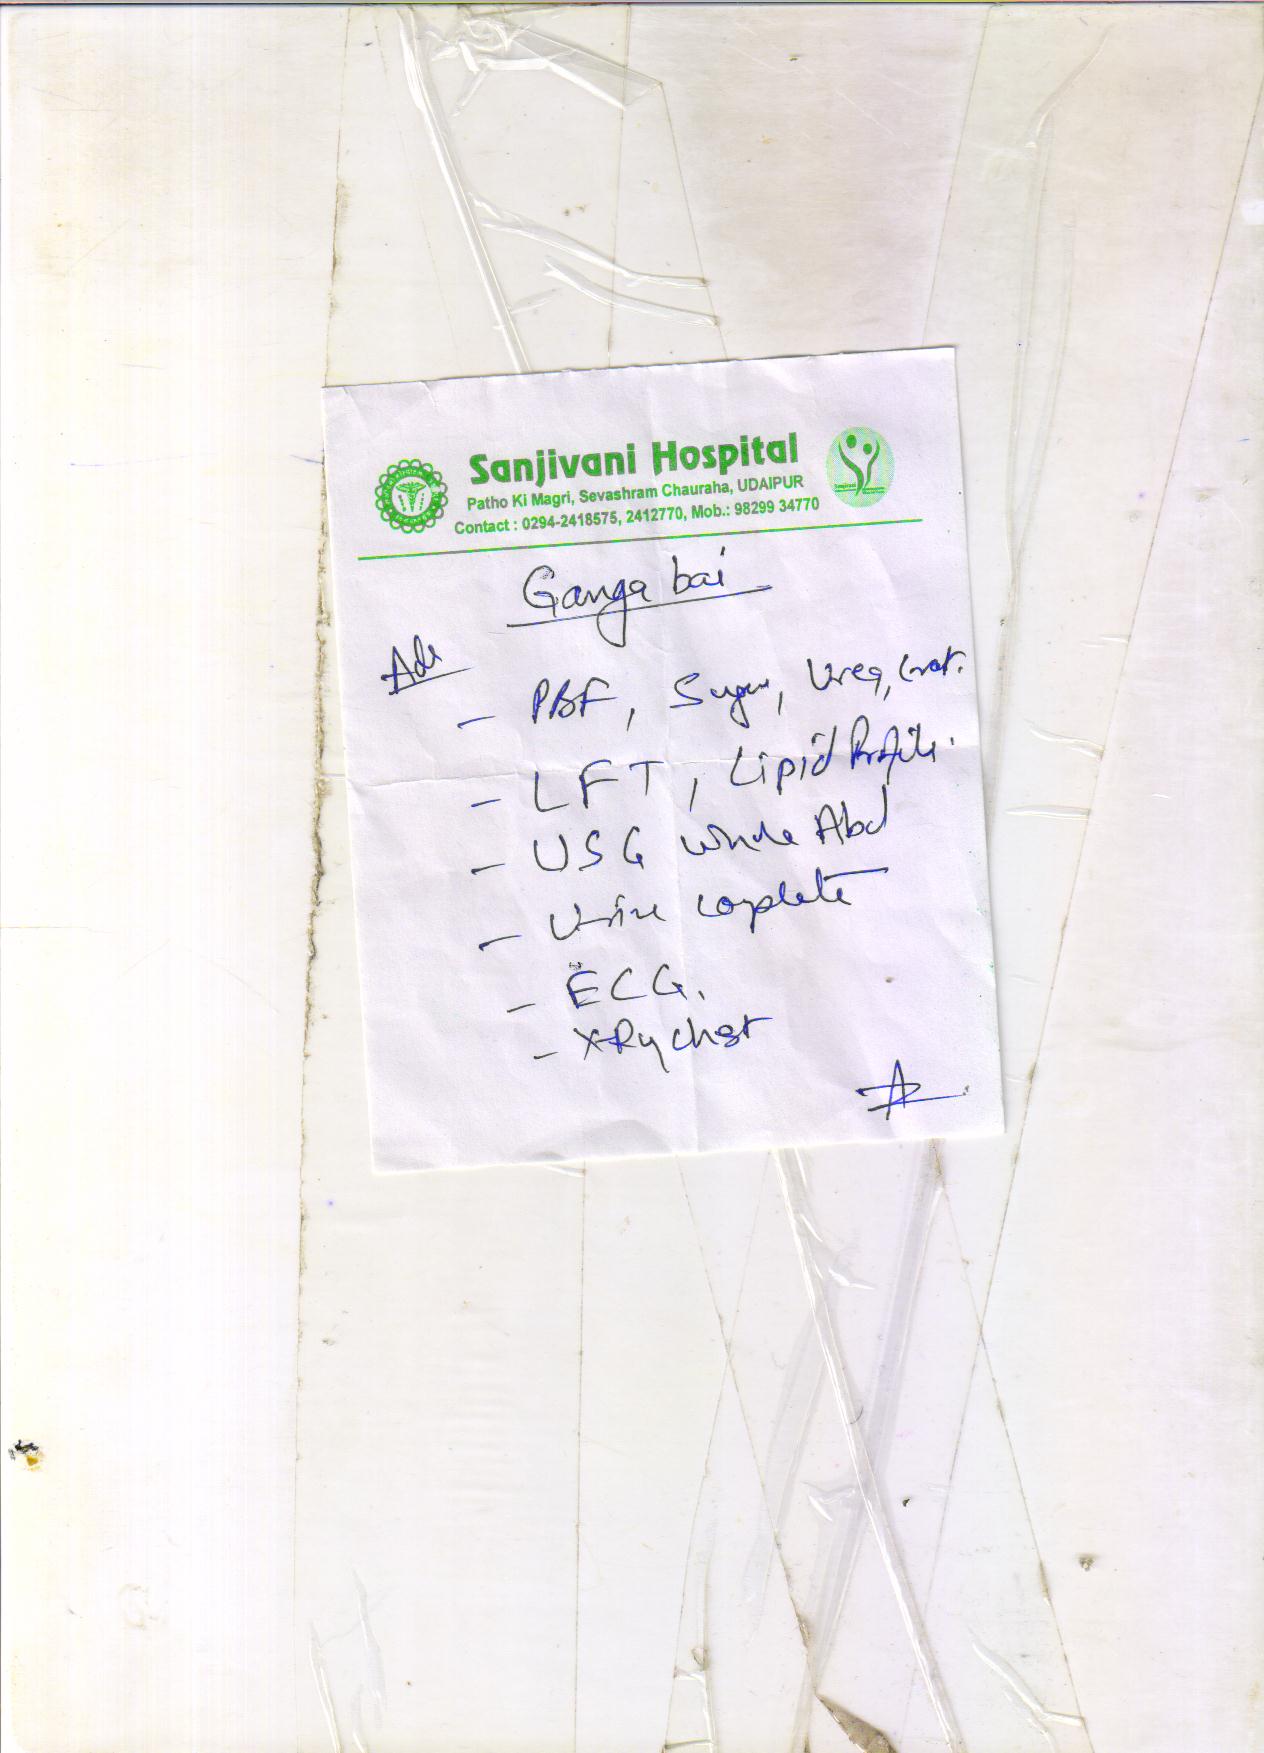 Sanjivani Hospital
Patho Ki Magri, Sevashram Chauraha, UDAIPUR
Contact : 0294-2418575, 2412770, Mob.: 98299 34770
Ganga bai
Adv
- PBF, Sugar, Urea, Creat.
- LFT, Lipid Profile.
- USG whole Abd
- Urine complete
- ECG.
- X-Ray chest